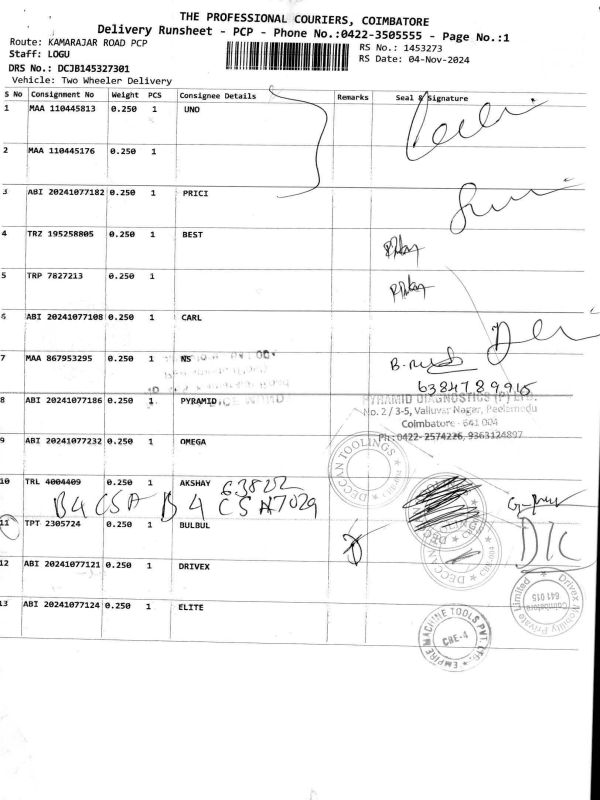 THE PROFESSIONAL COURIERS, COIMBATORE
Delivery Runsheet - PCP - Phone No.:0422-3505555 - Page No.:1
Route: KAMARAJAR ROAD PCP
Staff: LOGU
DRS No.: DCJB145327301
Vehicle: Two Wheeler Delivery
RS No.: 1453273
RS Date: 04-Nov-2024
S No Consignment No Weight PCS Consignee Details Remarks Seal & Signature
1 MAA 110445813 0.250 1 UNO
2 MAA 110445176 0.250 1
3 ABI 20241077182 0.250 1 PRICI
4 TRZ 195258805 0.250 1 BEST
5 TRP 7827213 0.250 1
6 ABI 20241077108 0.250 1 CARL
7 MAA 867953295 0.250 1 NS
6384789915
8 ABI 20241077186 0.250 1 PYRAMID
PYRAMID DIAGNOSTICS (P) LTD.
No. 2 / 3-5, Valluvar Nagar, Peelamedu
Coimbatore - 641 004
Ph : 0422- 2574226, 9363124897
9 ABI 20241077232 0.250 1 OMEGA
DECCAN TOOLINGS
10 TRL 4004409 0.250 1 AKSHAY
B4 CSA B4 CSA7029
11 TPT 2305724 0.250 1 BULBUL
DECCAN
12 ABI 20241077121 0.250 1 DRIVEX
Drivex Mobility Private Limited
Coimbatore
641 015
13 ABI 20241077124 0.250 1 ELITE
EMPIRE MACHINE TOOLS PVT. LTD.
CBE-4